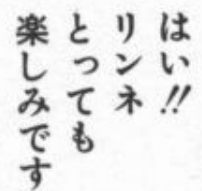 はい!!
リンネ
とっても
楽しみです